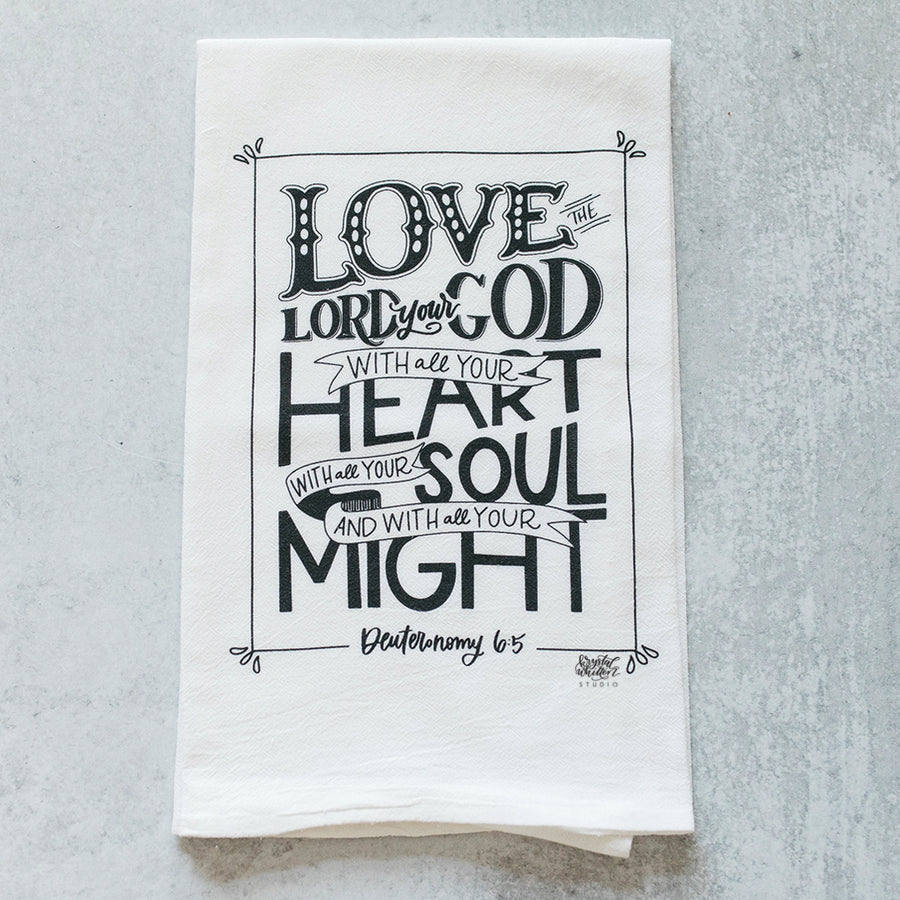 LOVE THE
LORD your GOD
WITH all YOUR
HEART
WITH all YOUR SOUL
AND WITH all YOUR
MIGHT
Deuteronomy 6:5
Krystal
Whitten
STUDIO